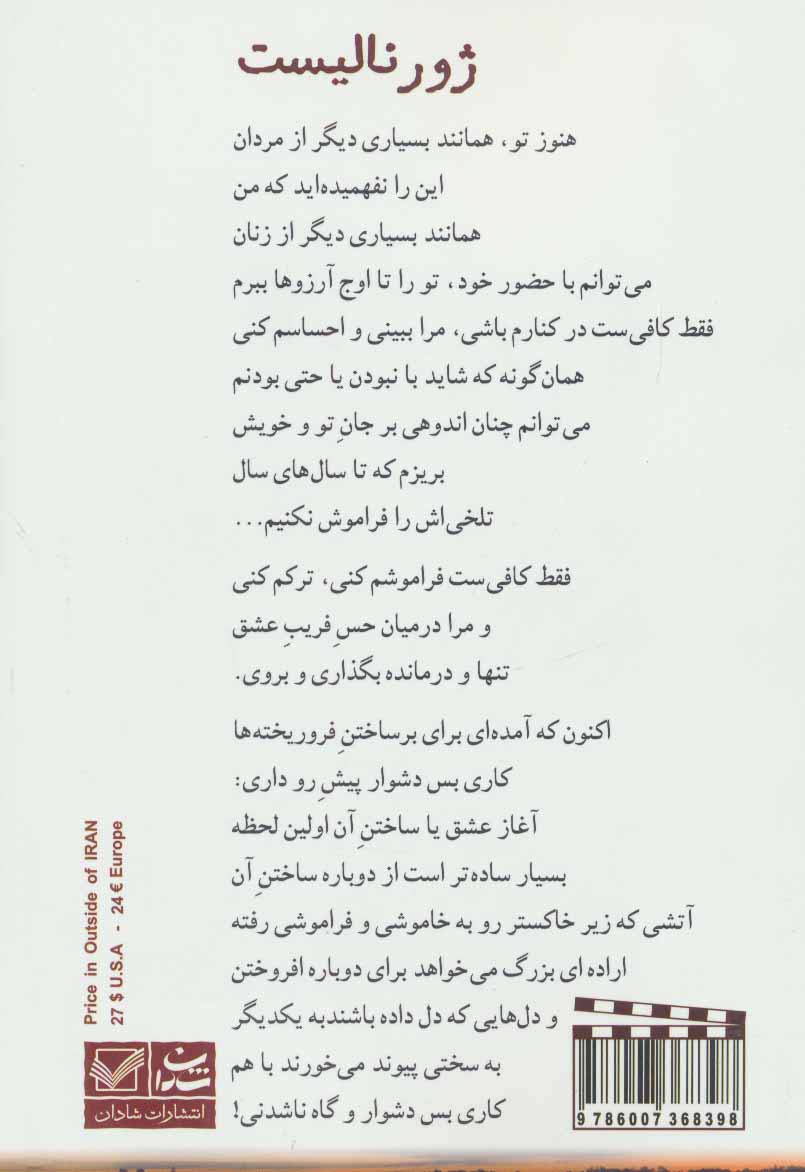 ژورنالیست
هنوز تو، همانند بسیاری دیگر از مردان
این را نفهمیده‌اید که من
همانند بسیاری دیگر از زنان
می‌توانم با حضور خود، تو را تا اوج آرزوها ببرم
فقط کافی‌ست در کنارم باشی، مرا ببینی و احساسم کنی
همان‌گونه که شاید با نبودن یا حتی بودنم
می‌توانم چنان اندوهی بر جانِ تو و خویش
بریزم که تا سال‌های سال
تلخی‌اش را فراموش نکنیم...
فقط کافی‌ست فراموشم کنی، ترکم کنی
و مرا درمیان حسِ فریبِ عشق
تنها و درمانده بگذاری و بروی.
اکنون که آمده‌ای برای برساختنِ فروریخته‌ها
کاری بس دشوار پیشِ رو داری:
آغاز عشق یا ساختنِ آن اولین لحظه
بسیار ساده‌تر است از دوباره ساختنِ آن
آتشی که زیر خاکستر رو به خاموشی و فراموشی رفته
اراده ای بزرگ می‌خواهد برای دوباره افروختن
و دل‌هایی که دل داده باشندبه یکدیگر
به سختی پیوند می‌خورند با هم
کاری بس دشوار و گاه ناشدنی!
Price in Outside of IRAN
27 $ U.S.A - 24 € Europe
شادان
انتشارات شادان
9 786007 368398